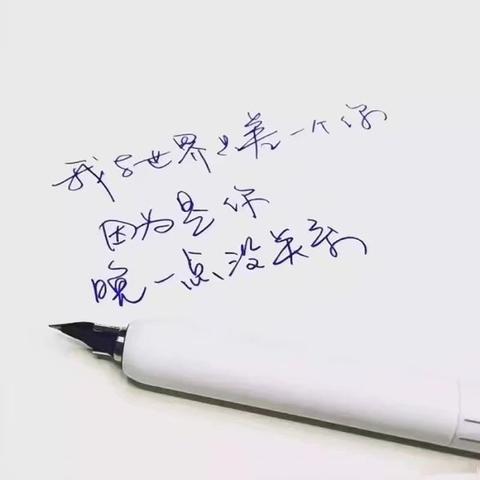 我与世界只差一个你
因为是你
晚一点没关系